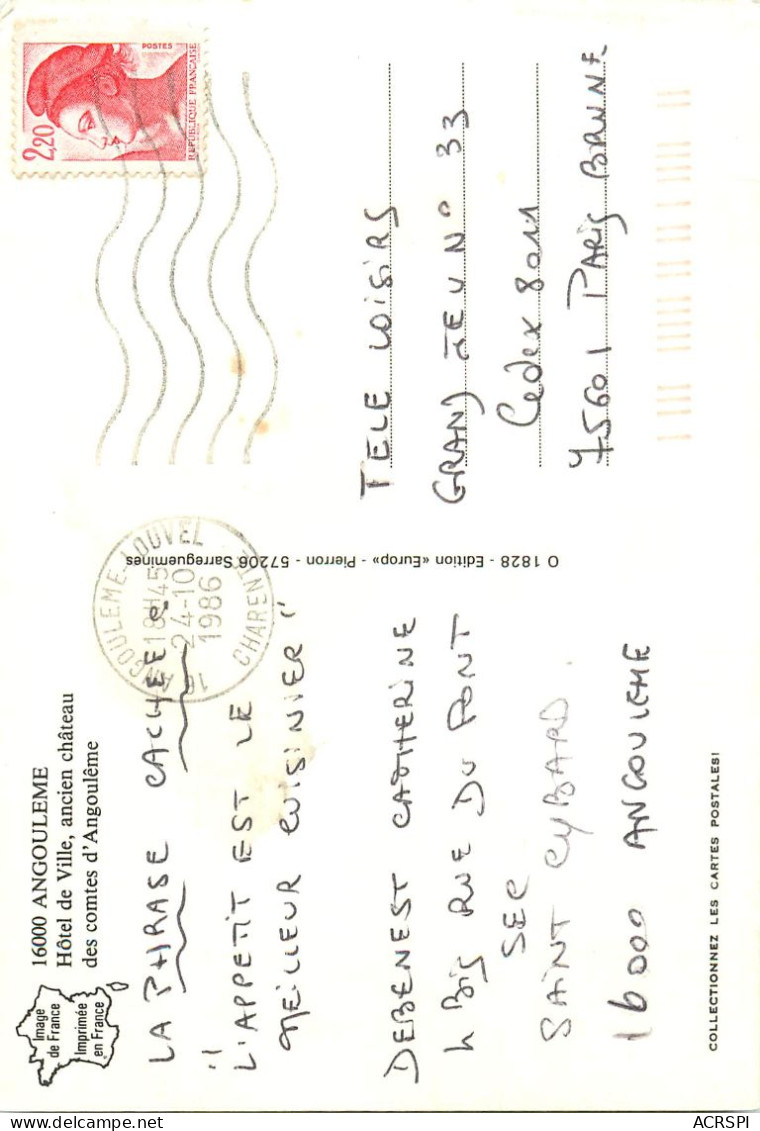 Image
de France
Imprimée
en France
16000 ANGOULEME
Hôtel de Ville, ancien château
des comtes d'Angoulême
LA PHRASE CACHEE
"
L'APPETIT EST LE
MEILLEUR CUISINIER"
DEBENEST CATHERINE
4 Bis RUE DU PONT
SEC
SAINT CYBARD.
16000 ANGOULEME
COLLECTIONNEZ LES CARTES POSTALES!
O 1828 - Edition «Europ» - Pierron - 57206 Sarreguemines
16 ANGOULEME-LOUVEL
18H45
24-10
1986
CHARENTE
POSTES
2,20
REPUBLIQUE FRANÇAISE
TELE LOISIRS
GRAND JEU N° 33
Cedex 8011
75601 PARIS BRUNE
ACRSPI